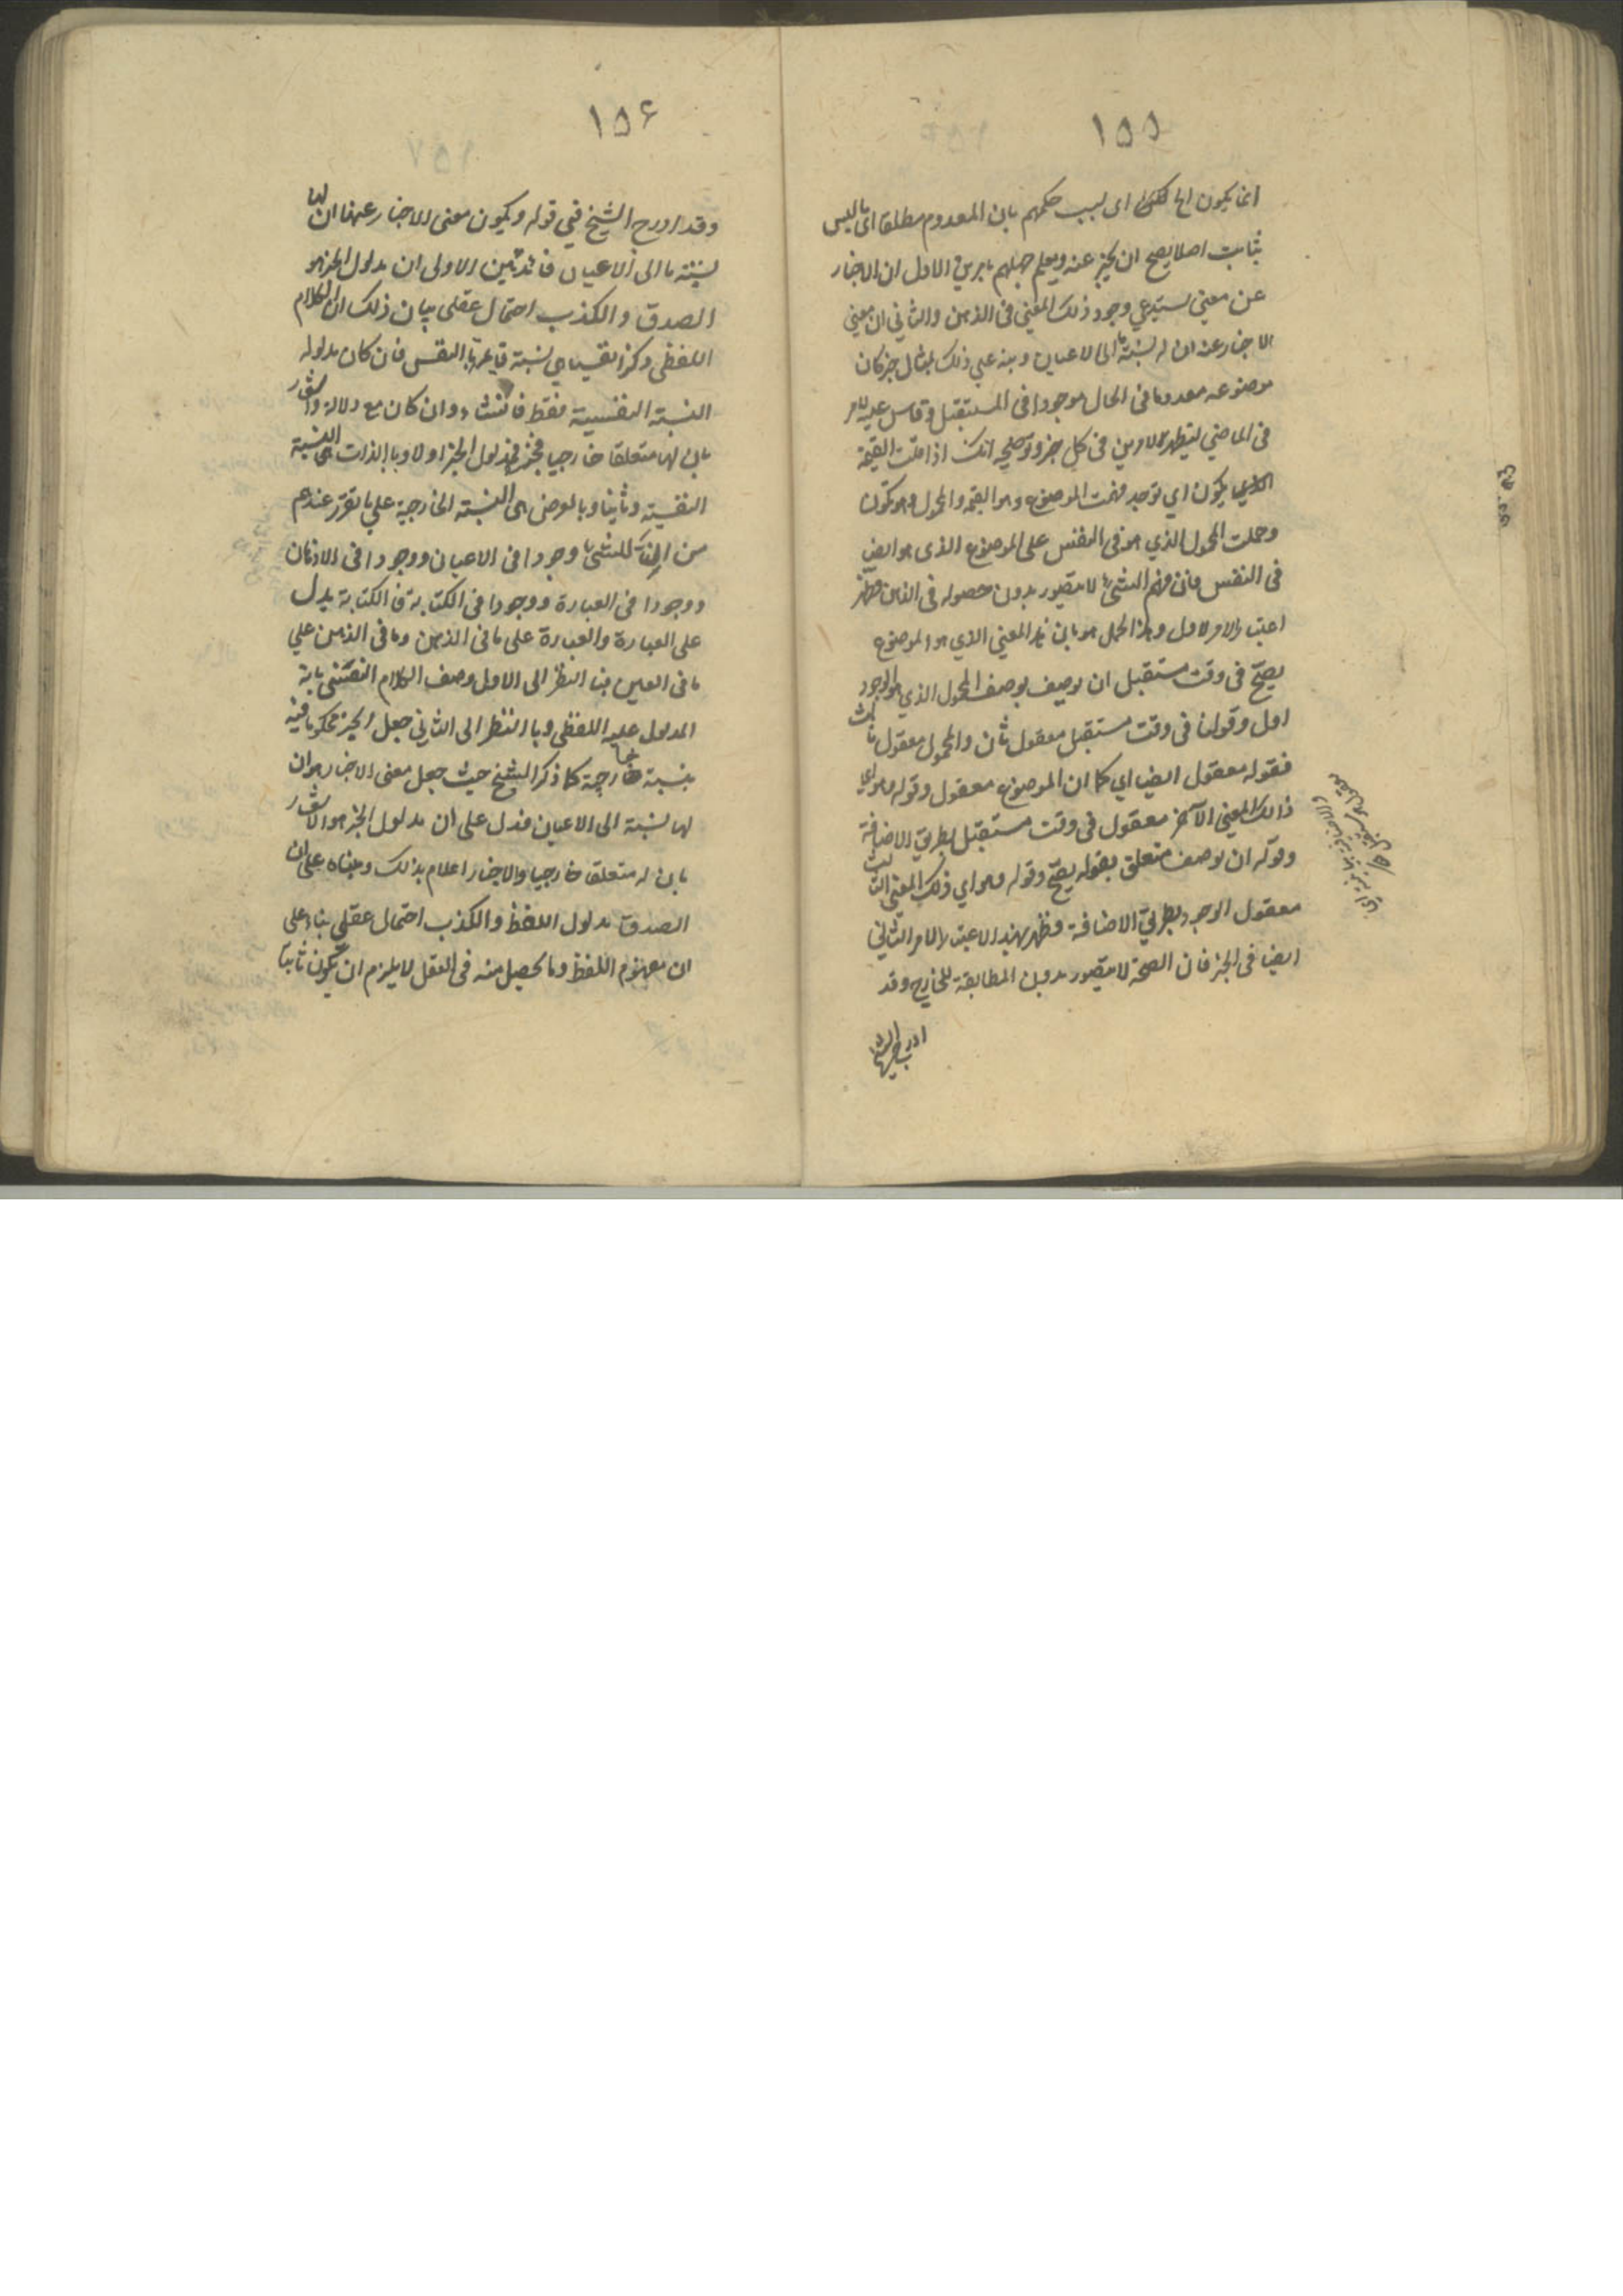 ١٥٥
انما يكون الى ذلك اى بسبب حكمهم بان المعدوم مطلقا اى ما ليس
بثابت اصلا يصح ان يخبر عنه ويعلم جهلهم بامرين الاول ان الاخبار
عن معنى يستدعي وجود ذلك المعنى فى الذهن والثاني ان معنى
الاخبار عنه ان له نسبة ما الى الاعيان ونبه على ذلك بمثال خبر كان
موضوعه معدوما فى الحال موجودا فى المستقبل وقاس عليه
فى الماضي ليظهر الامرين فى كل خبر وتوضيحه انك اذا قلت القيمة
يكون اي توجد فهمت الموضوع وهو القيمة والمحمول وهو تكون
وحملت المحمول الذي هو فى النفس على الموضوع الذى هو ايض
فى النفس فان فهم الشئ لا يتصور بدون حصوله فى الذهن فظهر
اعتبار الامر الاول وهذا الحمل هو بان هذا المعنى الذي هو الموضوع
يصح فى وقت مستقبل ان يوصف بوصف المحمول الذي هو الوجود
اول وقولنا فى وقت مستقبل معقول ثان والمحمول معقول ثالث
فقوله معقول ايضا اي كما ان الموضوع معقول وقوله وهو اي
ذلك المعنى الآخر معقول فى وقت مستقبل بطريق الاضافة
وقوله ان يوصف متعلق بقوله يصح وقوله وهو اي ذلك المعنى الثالث
معقول الوجود بطريق الاضافة وظهر بهذا الاعتبار الامر الثاني
ايضا فى الخبر فان الصحة لا يتصور بدون المطابقة للخارج وقد
ادرج الشيخ
١٥۶
وقد ادرج الشيخ في قوله ويكون معنى الاخبار عنها ان لها
نسبة ما الى الاعيان فائدتين الاولى ان مدلول الخبر هو
الصدق والكذب احتمال عقلى بيان ذلك ان الكلام
اللفظى وكذا النفسي نسبة قايمة بالنفس فان كان مدلوله
النسبة النفسية فقط فانشاء وان كان مع دلالة واشعار
بان لها متعلقا خارجيا فخبر فمدلول الخبر اولا وبالذات هى النسبة
النفسية وثانيا وبالعرض هى النسبة الخارجية على ما تقرر عندهم
من ان للشئ وجودا فى الاعيان ووجودا فى الاذهان
ووجودا فى العبارة ووجودا فى الكتابة فالكتابة يدل
على العبارة والعبارة على ما فى الذهن وما فى الذهن علي
ما فى العين فبالنظر الى الاول وصف الكلام النفسي بانه
المدلول عليه اللفظى وبالنظر الى الثاني جعل الخبر محكوما فيه
بنسبة خارجية كما ذكر الشيخ حيث جعل معنى الاخبار هو ان
لها نسبة الى الاعيان فدل على ان مدلول الخبر هو الاشعار
بان له متعلقا خارجيا والاخبار اعلام بذلك ومبناه على ان
الصدق مدلول اللفظ والكذب احتمال عقلى بناء على
ان مفهوم اللفظ وما يحصل منه فى العقل لا يلزم ان يكون ثابتا